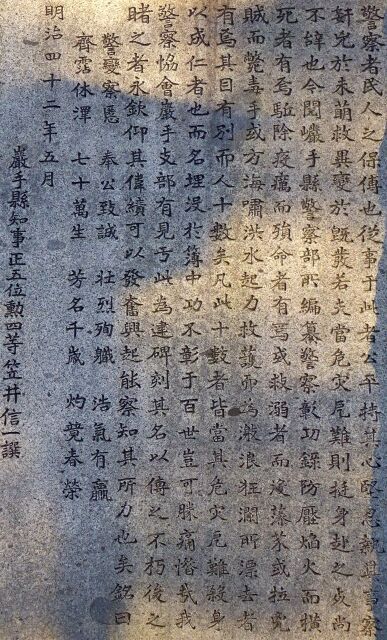 警察者民人之保傅也從事于此者公平持其心堅忍執其事察
奸兇於未萌救異變於既發若夫當危災厄難則挺身赴之死尚
不辭也今閲巖手縣警察部所編纂警察彰功録防壓焔火而横
死者有焉驅除疫癘而殞命者有焉或救溺者而淹落或拉兇
賊而斃毒手或方海嘯洪水起力救護而為激浪狂瀾所漂去者
有焉其目有別而人十數矣凡此十數者皆當其危災厄難殺身
以成仁者也而名埋没於簿中功不彰于百世豈可勝痛惜哉我
警察恊會巖手支部有見于此為建碑刻其名以傳之不朽後之
睹之者永欽仰其偉績可以發奮興起能察知其所力也矣銘曰
警變察慝 奉公致誠 壮烈殉職 浩氣有贏
齊霑休澤 七十萬生 芳名千歳 灼煢春榮
明治四十二年五月
巖手縣知事正五位勲四等笠井信一撰